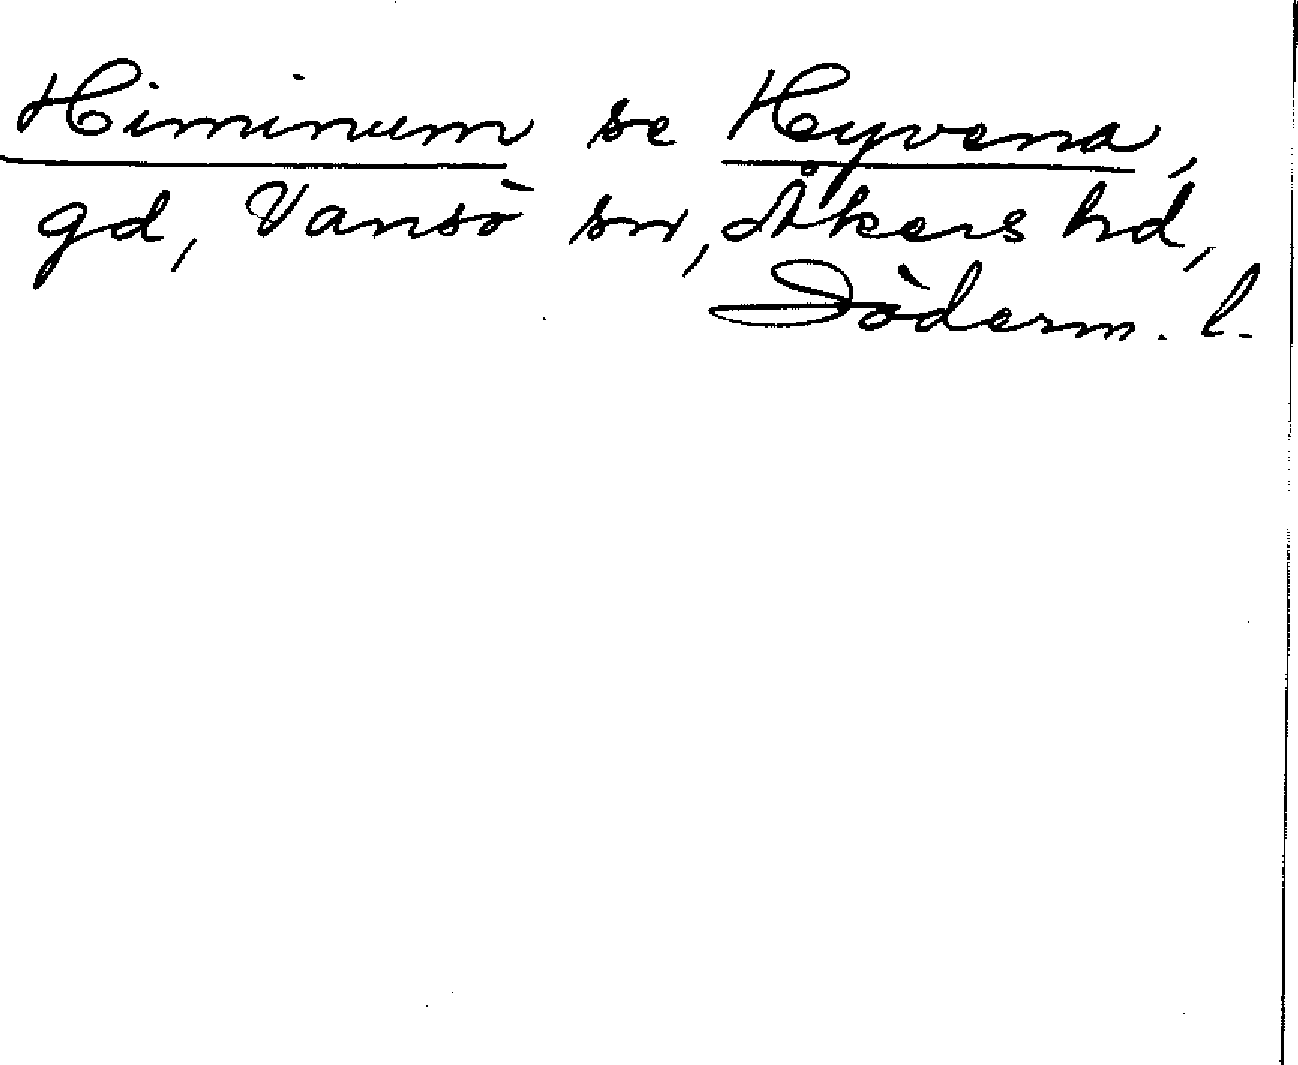 Himinum se Hyvena,
gd, Vansö sn, Åkers hd,
Söderm. l.